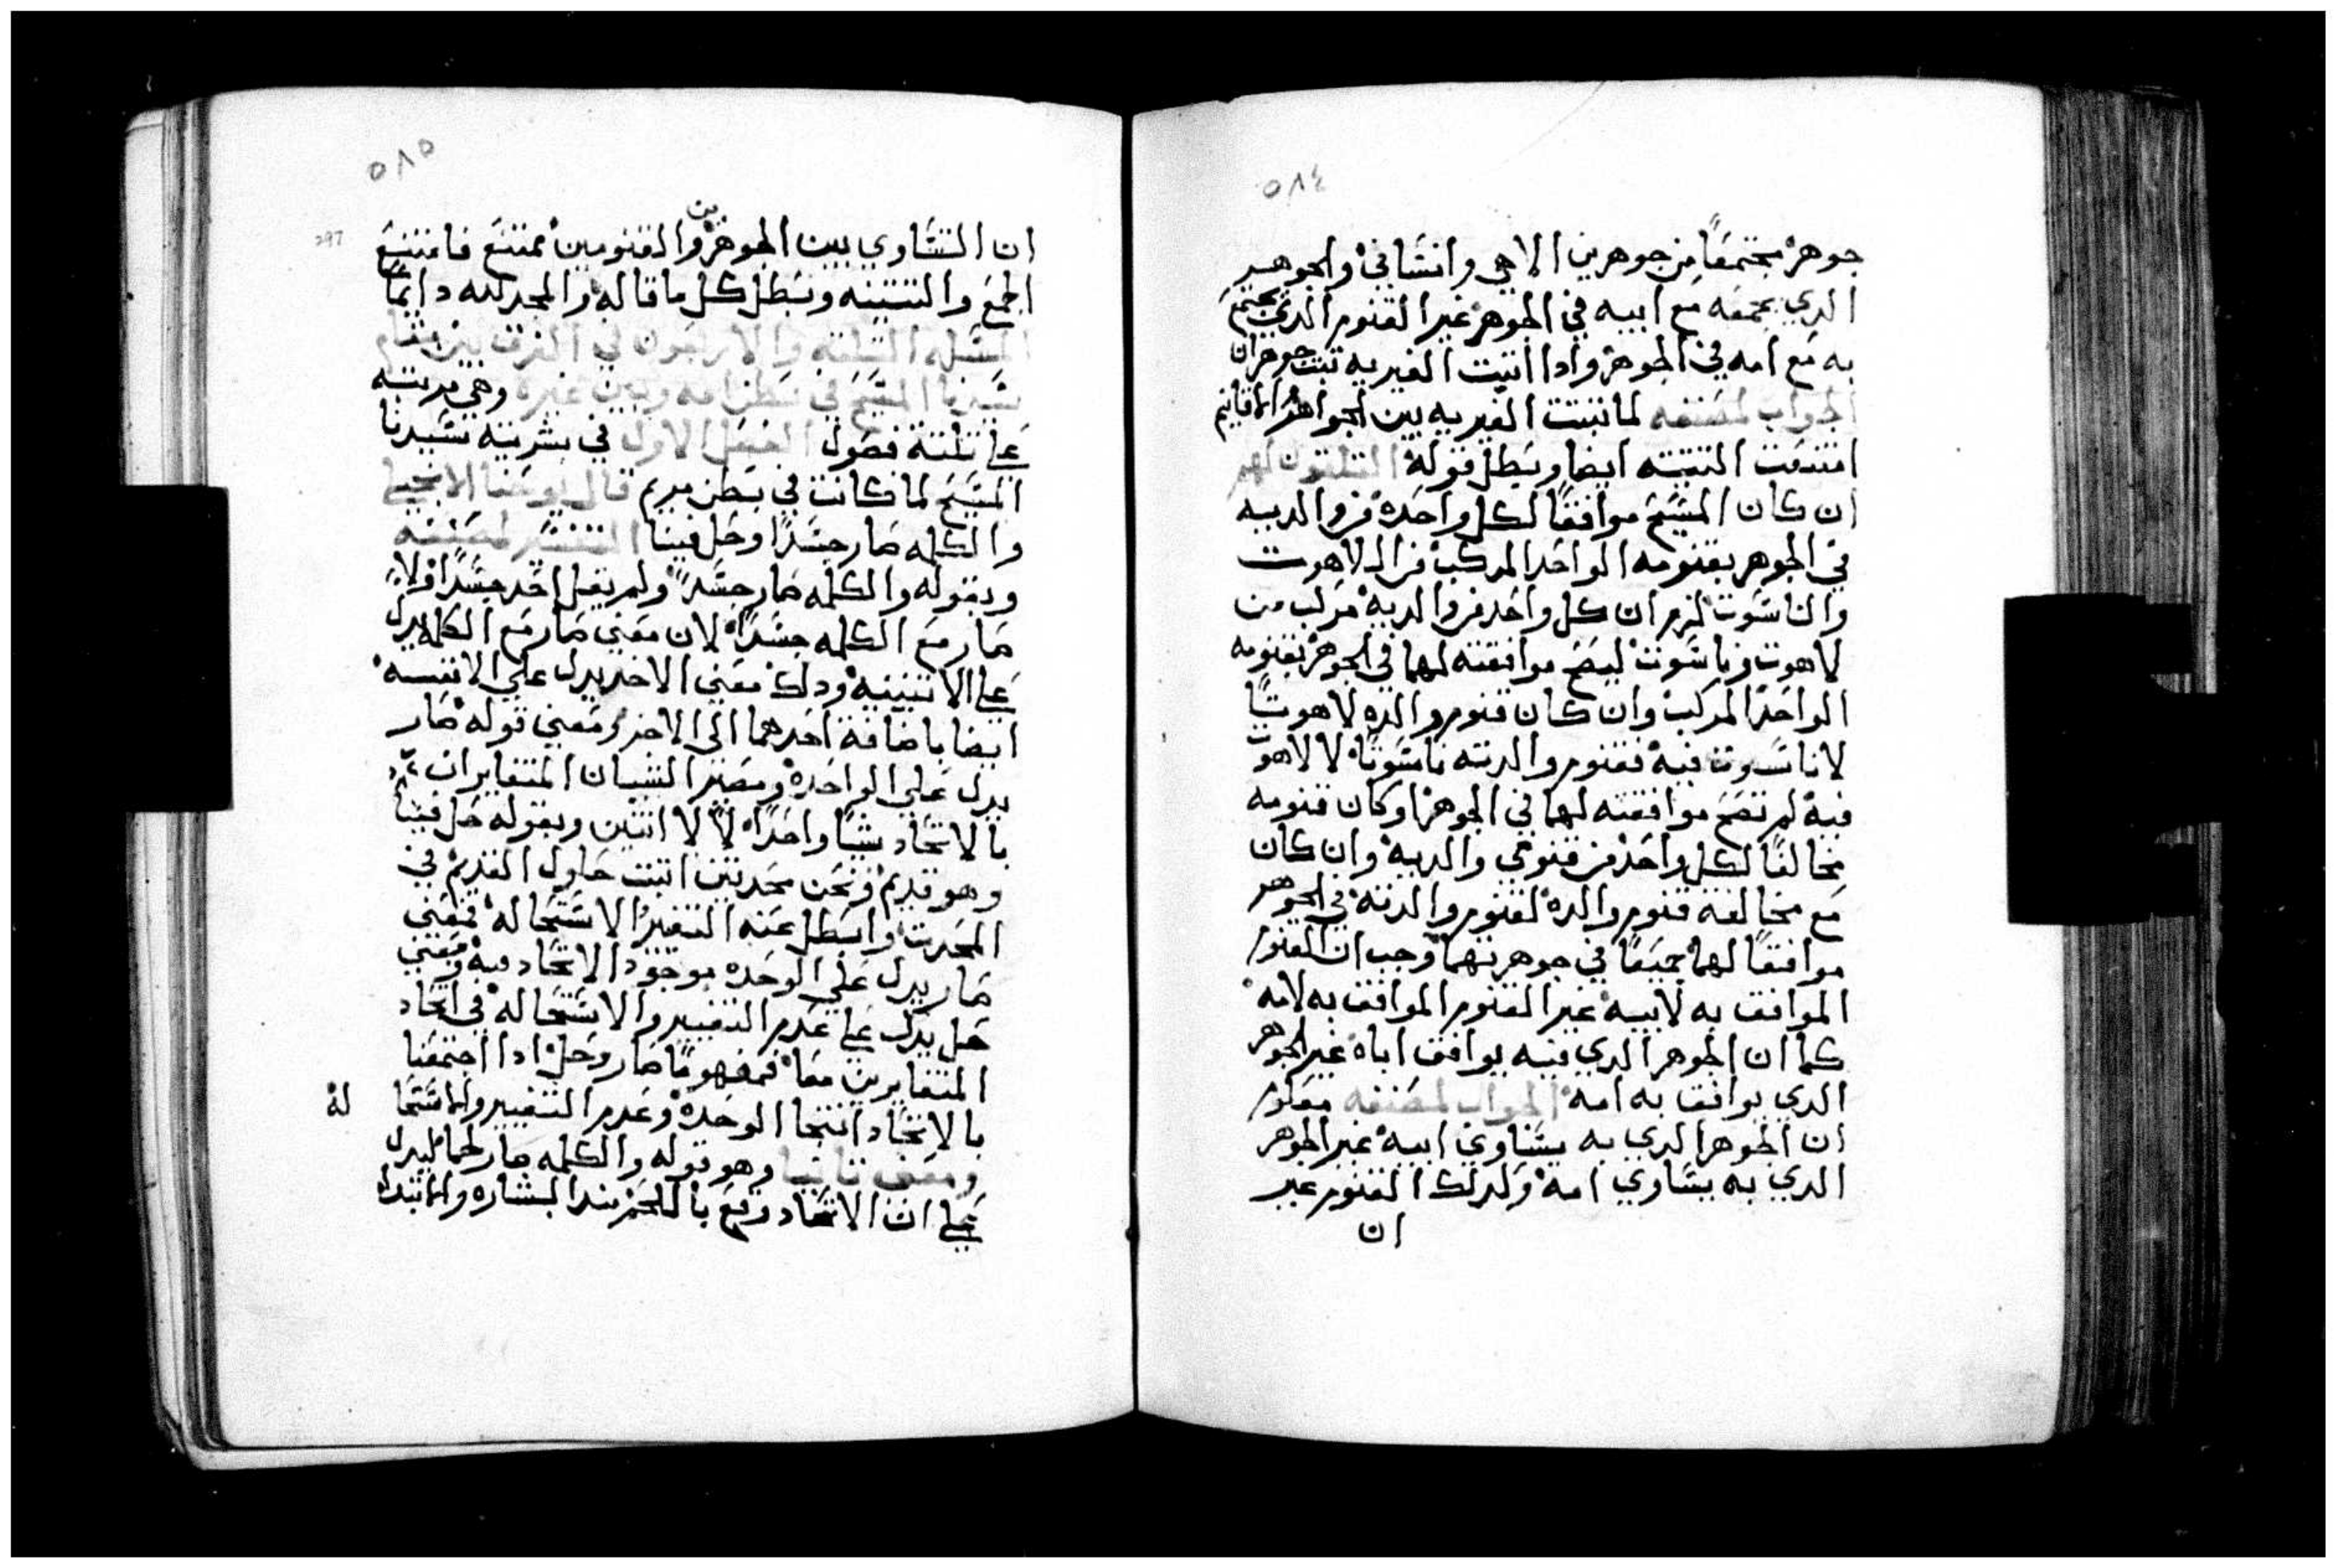 ٥٨٤
جوهر مجتمعًا من جوهرين الاهي وانساني والجوهر
الدي يجمعه مع ابيه في الجوهر غير القنوم الدي يجتمع
به مع امه في الجوهر وادا اتبت الغيريه تبت جوهران
الجواب لمصنفه لما تبتت الغيريه بين الجواهر والاقانيم
امتنعت التتنيه ايضا وبطل قوله التلتون لهم
ان كان المسيح موافقًا لكل واحده من والديه
في الجوهر بقنومه الواحد المركب من اللاهوت
والناسوت لزم ان كل واحد من والديه مركب من
لاهوت وناسوت ليصح موافقته لهما في الجوهر بقنومه
الواحد المركب وان كان قنوم والده لاهوتًا
لا ناسوت فيه فقنوم والدته ناسوتًا لا لاهوت
فيه لم تصح موافقته لهما في الجوهر او كان قنومه
مخالفًا لكل واحد من قنومي والديه وان كان
مع مخالفه قنوم والده لقنوم والدته في الجوهر
موافقًا لهما جميعًا في جوهريهما وجب ان القنوم
الموافق به لابيه غير القنوم الموافق به لامه
كما ان الجوهر الدي فيه يوافق اباه غير الجوهر
الدي يوافق به امه الجواب لمصنفه معلوم
ان الجوهر الدي به يساوي ابيه غير الجوهر
الدي به يساوي امه ولدلك القنوم غير
ان
٥٨٥
297
ان التساوي بين الجوهرين والقنومين ممتنع فامتنع
الجمع والتتنيه وبطل كل ما قاله والمجد لله دايمًا
المسله التالته والاربعون في الفرق بين مقام
سيدنا المسيح في بطن امه وبين غيره وهي مرتبه
علي تلتة فصول الفصل الاول في بشريته سيدنا
المسيح لما كانت في بطن مريم قال يوحنا الانجيلي
والكلمه صار جسدًا وحل فينا التفسير لمصنفه
وبقوله والكلمه صار جسدًا ولم يقل اخد جسدًا ولا
صار مع الكلمه جسدًا لان معني صار مع الكلمه يدل
علي الاتنينيه ودلك معني الاخد يدل علي الاتنينيه
ايضا باضافة احدهما الي الاخر ومعني قوله صار
يدل علي الواحده ومصير الشيان المتغايران
بالاتحاد شيًا واحدًا لا اتنين وبقوله حل فينا
وهو قديم ونحن محدتين اتبت حلول القديم في
المحدت وابطل عنه التغير الاستحاله فمعني
صار يدل علي الوحده موجود الاتحاد فيه ومعني
حل يدل علي عدم التغيير والاستحاله في اتحاد
المتغايرين معًا فمفهومًا صار وحل ادا اجتمعنا
بالاتحاد انتجا الوحده وعدم التغيير والاستحا له
ومعني تانيا وهو قوله والكلمه صار لحما ليدل
علي ان الاتحاد وقع باللحم مند البشاره والابتدا